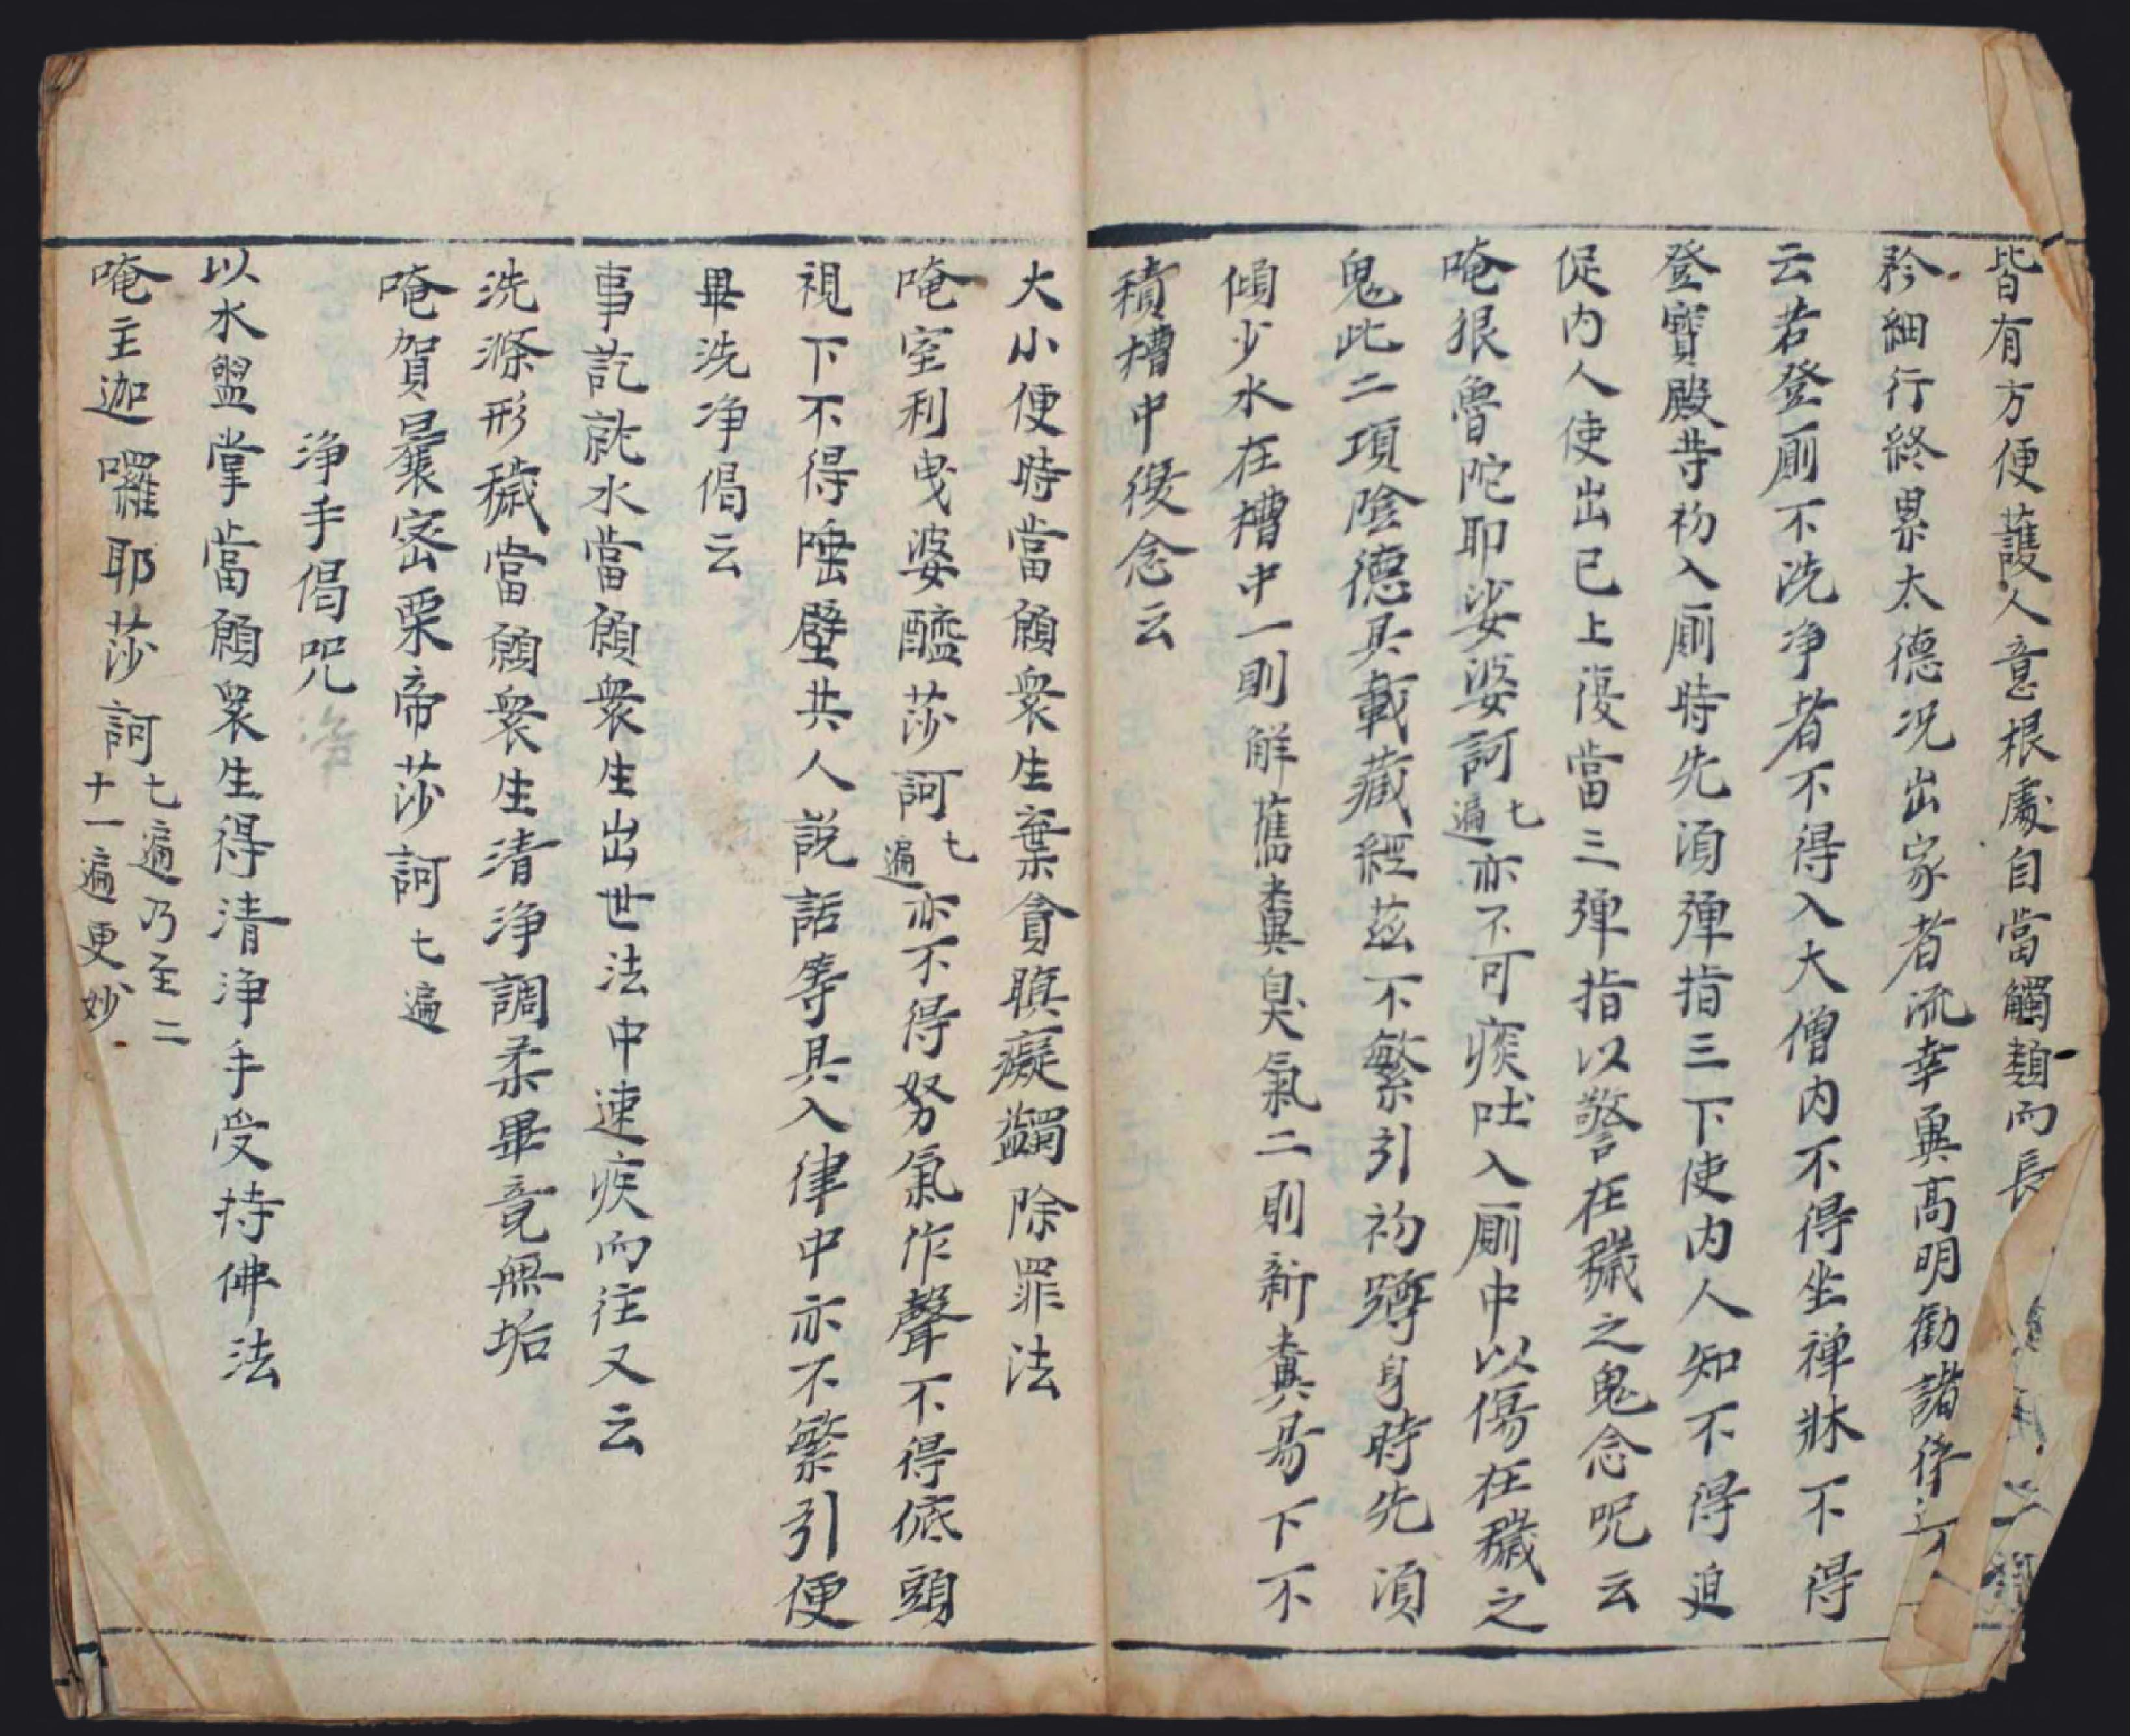 皆有方便護人意根處自當觸類而長
矜細行終累太德况出家者流幸興高明勸諸律
云若登厠不洗净者不得入大僧内不得坐禅牀不得
登寶殿等初入厠時先湏彈指三下使内人知不得迫
促内人使出已上復當三彈指以警在穢之鬼念呪云
唵狠魯陀耶娑婆訶七遍亦不可痰吐入厠中以傷在穢之
鬼此二項陰德具載藏經茲不繁引初蹲身時先湏
傾少水在槽中一則解舊糞臭氣二則新糞易下不
積槽中後念云
大小便時當願衆生棄貪瞋癡蠲除罪法
唵室利曳婆醯莎訶七遍亦不得努氣作聲不得低頭
視下不得唾壁共人説話等具入律中亦不繁引便
畢洗净偈云
事訖就水當願衆生出世法中速疾而往又云
洗滌形穢當願衆生清淨調柔畢竟無垢
唵賀曩密栗帝莎訶七遍
淨手偈呪
以水盥掌當願衆生得清淨手受持佛法
唵主迦囉耶莎訶七遍乃至二十一遍更妙